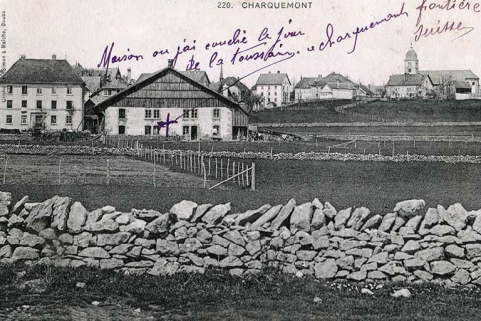 220. CHARQUEMONT
Maison ou j'ai couché le jour
de la Toussaint. a charquemont
frontière
Suisse
à Maîche, Doubs